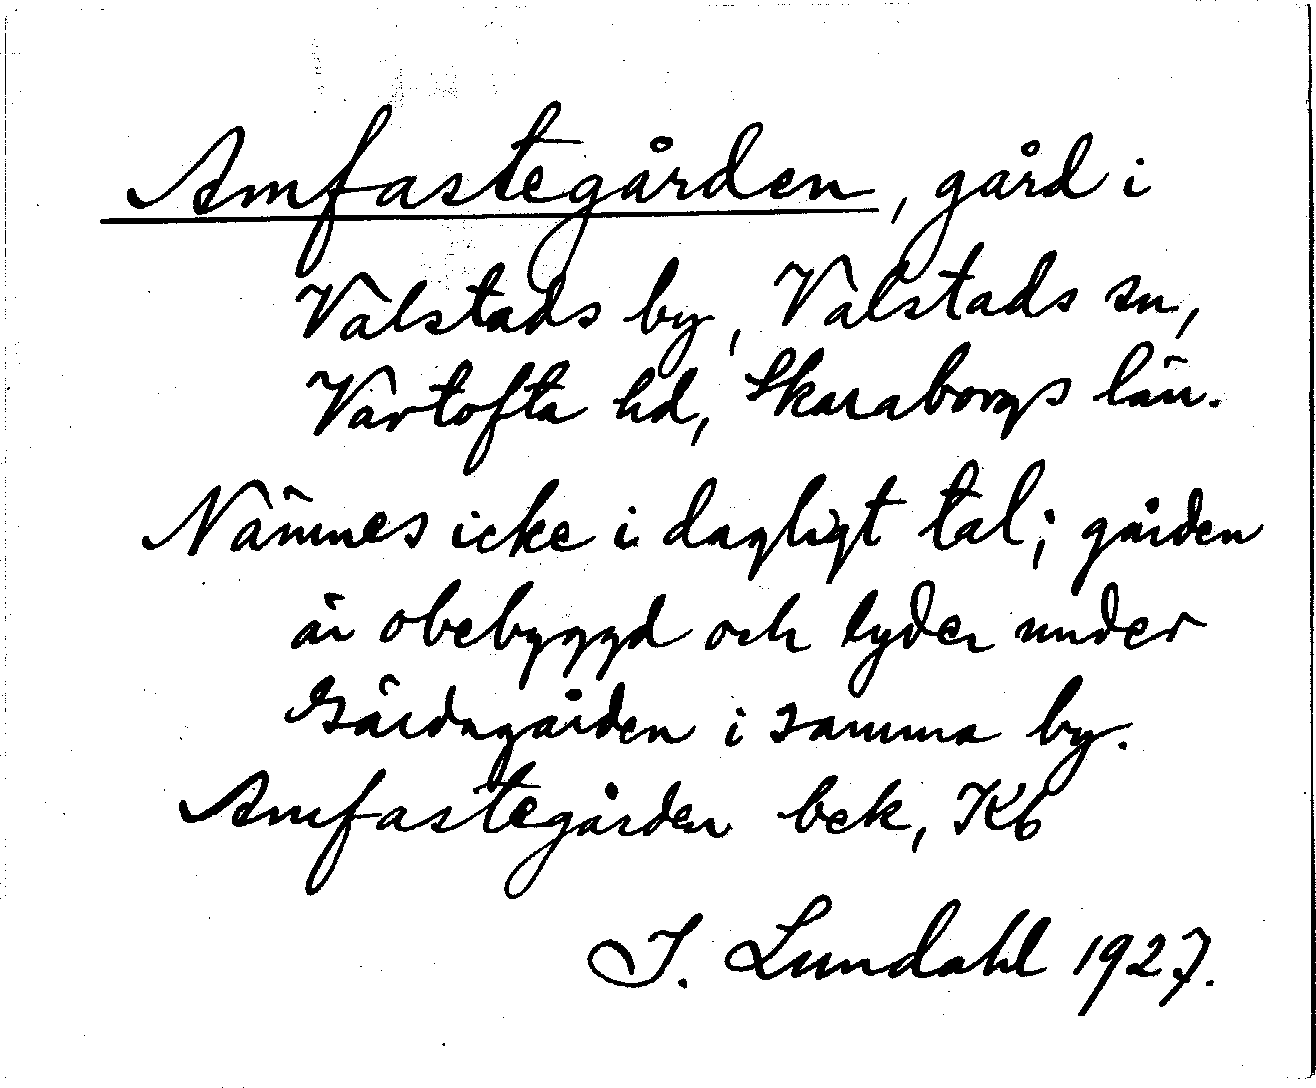 Amfastegården, gård i
Valstads by, Valstads sn,
Vartofta hd, Skaraborgs län.
Nämnes icke i dagligt tal; gården
är obebyggd och lyder under
Gärdsgården i samma by.
Amfastegården bek, Kb
I. Lundahl 1927.